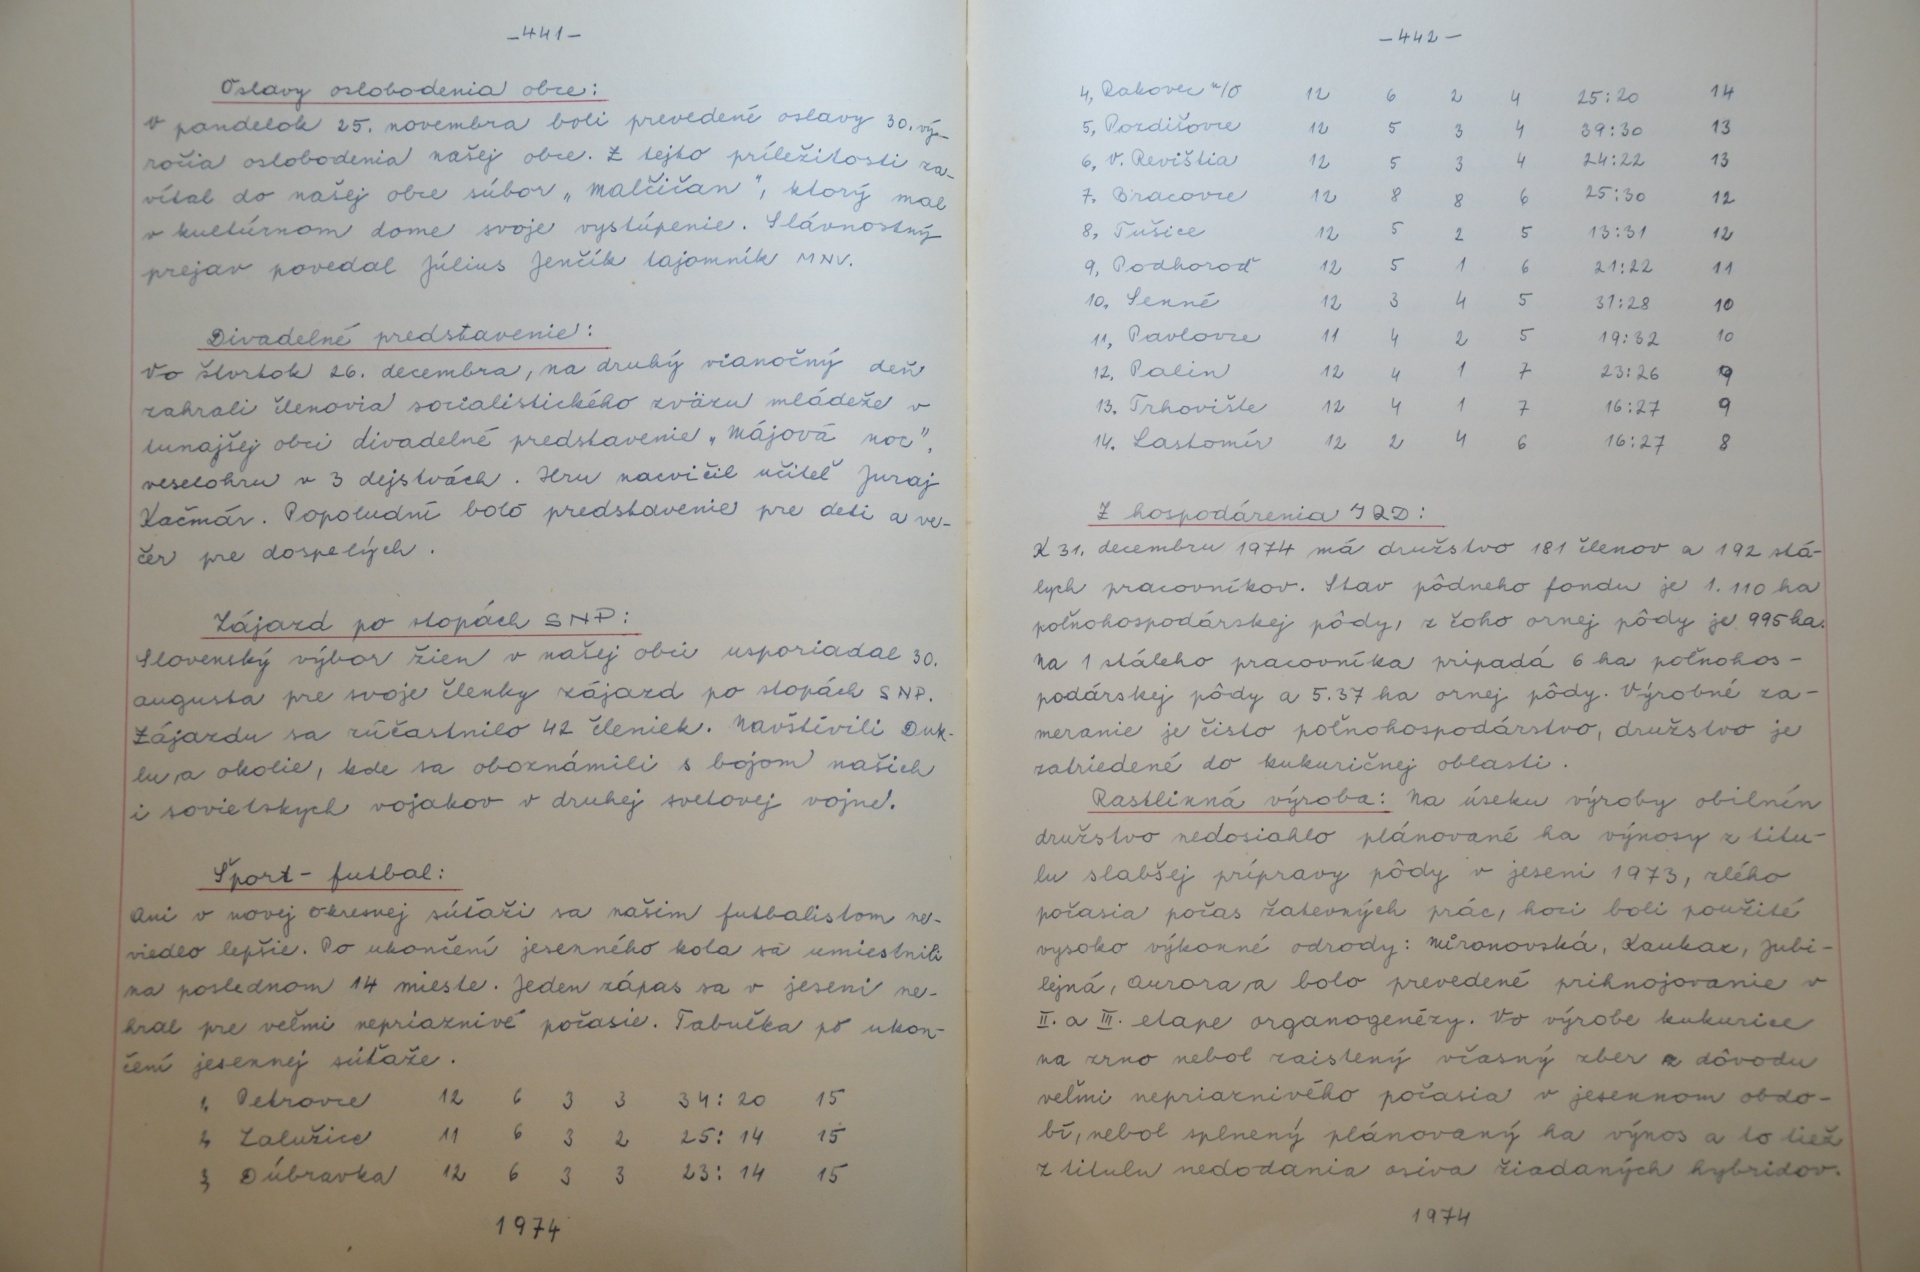 -441-
Oslavy oslobodenia obce:
V pondelok 25. novembra boli prevedené oslavy 30. vý-
ročia oslobodenia našej obce. Z tejto príležitosti za-
vítal do našej obce súbor „Malčičan", ktorý mal
v kultúrnom dome svoje vystúpenie. Slávnostný
prejav povedal Július Jenčík tajomník MNV.
Divadelné predstavenie:
Vo štvrtok 26. decembra, na druhý vianočný deň
zahrali členovia socialistického zväzu mládeže v
tunajšej obci divadelné predstavenie „Májová noc",
veselohru v 3 dejstvách. Hru nacvičil učiteľ Juraj
Kačmár. Popoludní bolo predstavenie pre deti a ve-
čer pre dospelých.
Zájazd po stopách SNP:
Slovenský výbor žien v našej obci usporiadal 30.
augusta pre svoje členky zájazd po stopách SNP.
Zájazdu sa zúčastnilo 42 členiek. Navštívili Duk-
lu a okolie, kde sa oboznámili s bojom našich
i sovietskych vojakov v druhej svetovej vojne.
Šport - futbal:
Ani v novej okresnej súťaži sa našim futbalistom ne-
viedlo lepšie. Po ukončení jesenného kola sa umiestnili
na poslednom 14 mieste. Jeden zápas sa v jeseni ne-
hral pre veľmi nepriaznivé počasie. Tabuľka po ukon-
čení jesennej súťaže.
1, Petrovce 12 6 3 3 34:20 15
2, Zalužice 11 6 3 2 25:14 15
3, Dúbravka 12 6 3 3 23:14 15
1974
-442-
4, Rakovec n/O 12 6 2 4 25:20 14
5, Pozdišovce 12 5 3 4 39:30 13
6, V. Revištia 12 5 3 4 24:22 13
7. Bracovce 12 8 8 6 25:30 12
8, Tušice 12 5 2 5 13:31 12
9, Podhoroď 12 5 1 6 21:22 11
10. Senné 12 3 4 5 31:28 10
11, Pavlovce 11 4 2 5 19:32 10
12. Palin 12 4 1 7 23:26 9
13. Trhovište 12 4 1 7 16:27 9
14. Lastomír 12 2 4 6 16:27 8
Z hospodárenia JRD:
K 31. decembru 1974 má družstvo 181 členov a 192 stá-
lych pracovníkov. Stav pôdneho fondu je 1.110 ha
poľnohospodárskej pôdy, z čoho ornej pôdy je 995 ha.
Na 1 stáleho pracovníka pripadá 6 ha poľnohos-
podárskej pôdy a 5.37 ha ornej pôdy. Výrobné za-
meranie je čisto poľnohospodárstvo, družstvo je
zatriedené do kukuričnej oblasti.
Rastlinná výroba: Na úseku výroby obilnín
družstvo nedosiahlo plánované ha výnosy z titu-
lu slabšej prípravy pôdy v jeseni 1973, zlého
počasia počas žatevných prác, hoci boli použité
vysoko výkonné odrody: Mironovská, Kaukaz, Jubi-
lejná, Aurora, a bolo prevedené prihnojovanie v
II. a III. etape organogenézy. Vo výrobe kukurice
na zrno nebol zaistený včasný zber z dôvodu
veľmi nepriaznivého počasia v jesennom obdo-
bí, nebol splnený plánovaný ha výnos a to tiež
z titulu nedodania osiva žiadaných hybridov.
1974